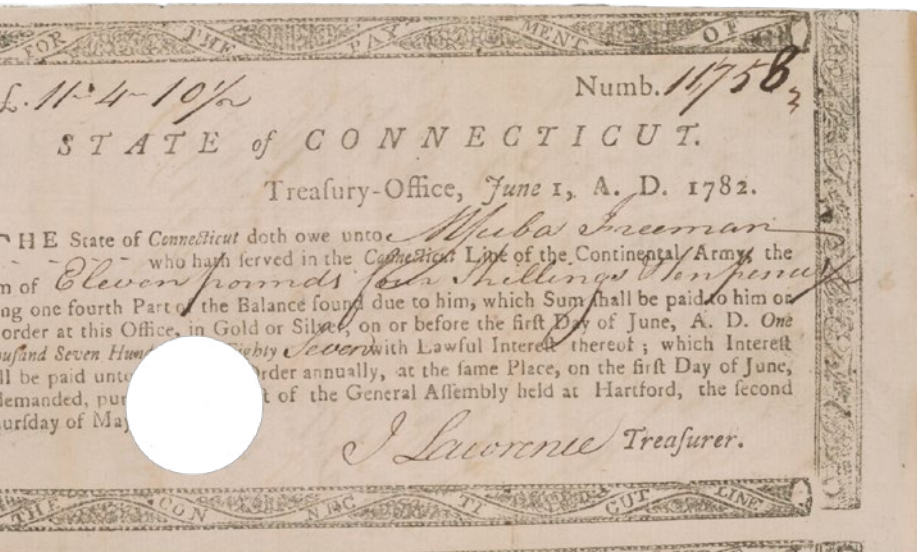 FOR THE PAY MENT OF
£. 11-4-10½ Numb. 11,758
STATE of CONNECTICUT.
Treaſury-Office, June 1, A. D. 1782.
HE State of Connecticut doth owe unto Freeman
who hath ſerved in the Connecticut Line of the Continental Army, the
m of Eleven pounds four Shillings & tenpence
ng one fourth Part of the Balance found due to him, which Sum ſhall be paid to him or
order at this Office, in Gold or Silver, on or before the firſt Day of June, A. D. One
ouſand Seven Hund Eighty Seven with Lawful Intereſt thereof ; which Intereſt
ll be paid unto Order annually, at the ſame Place, on the firſt Day of June,
demanded, pur t of the General Aſſembly held at Hartford, the ſecond
urſday of May
J Lawrence Treaſurer.
THE CON NEC TI CUT LINE